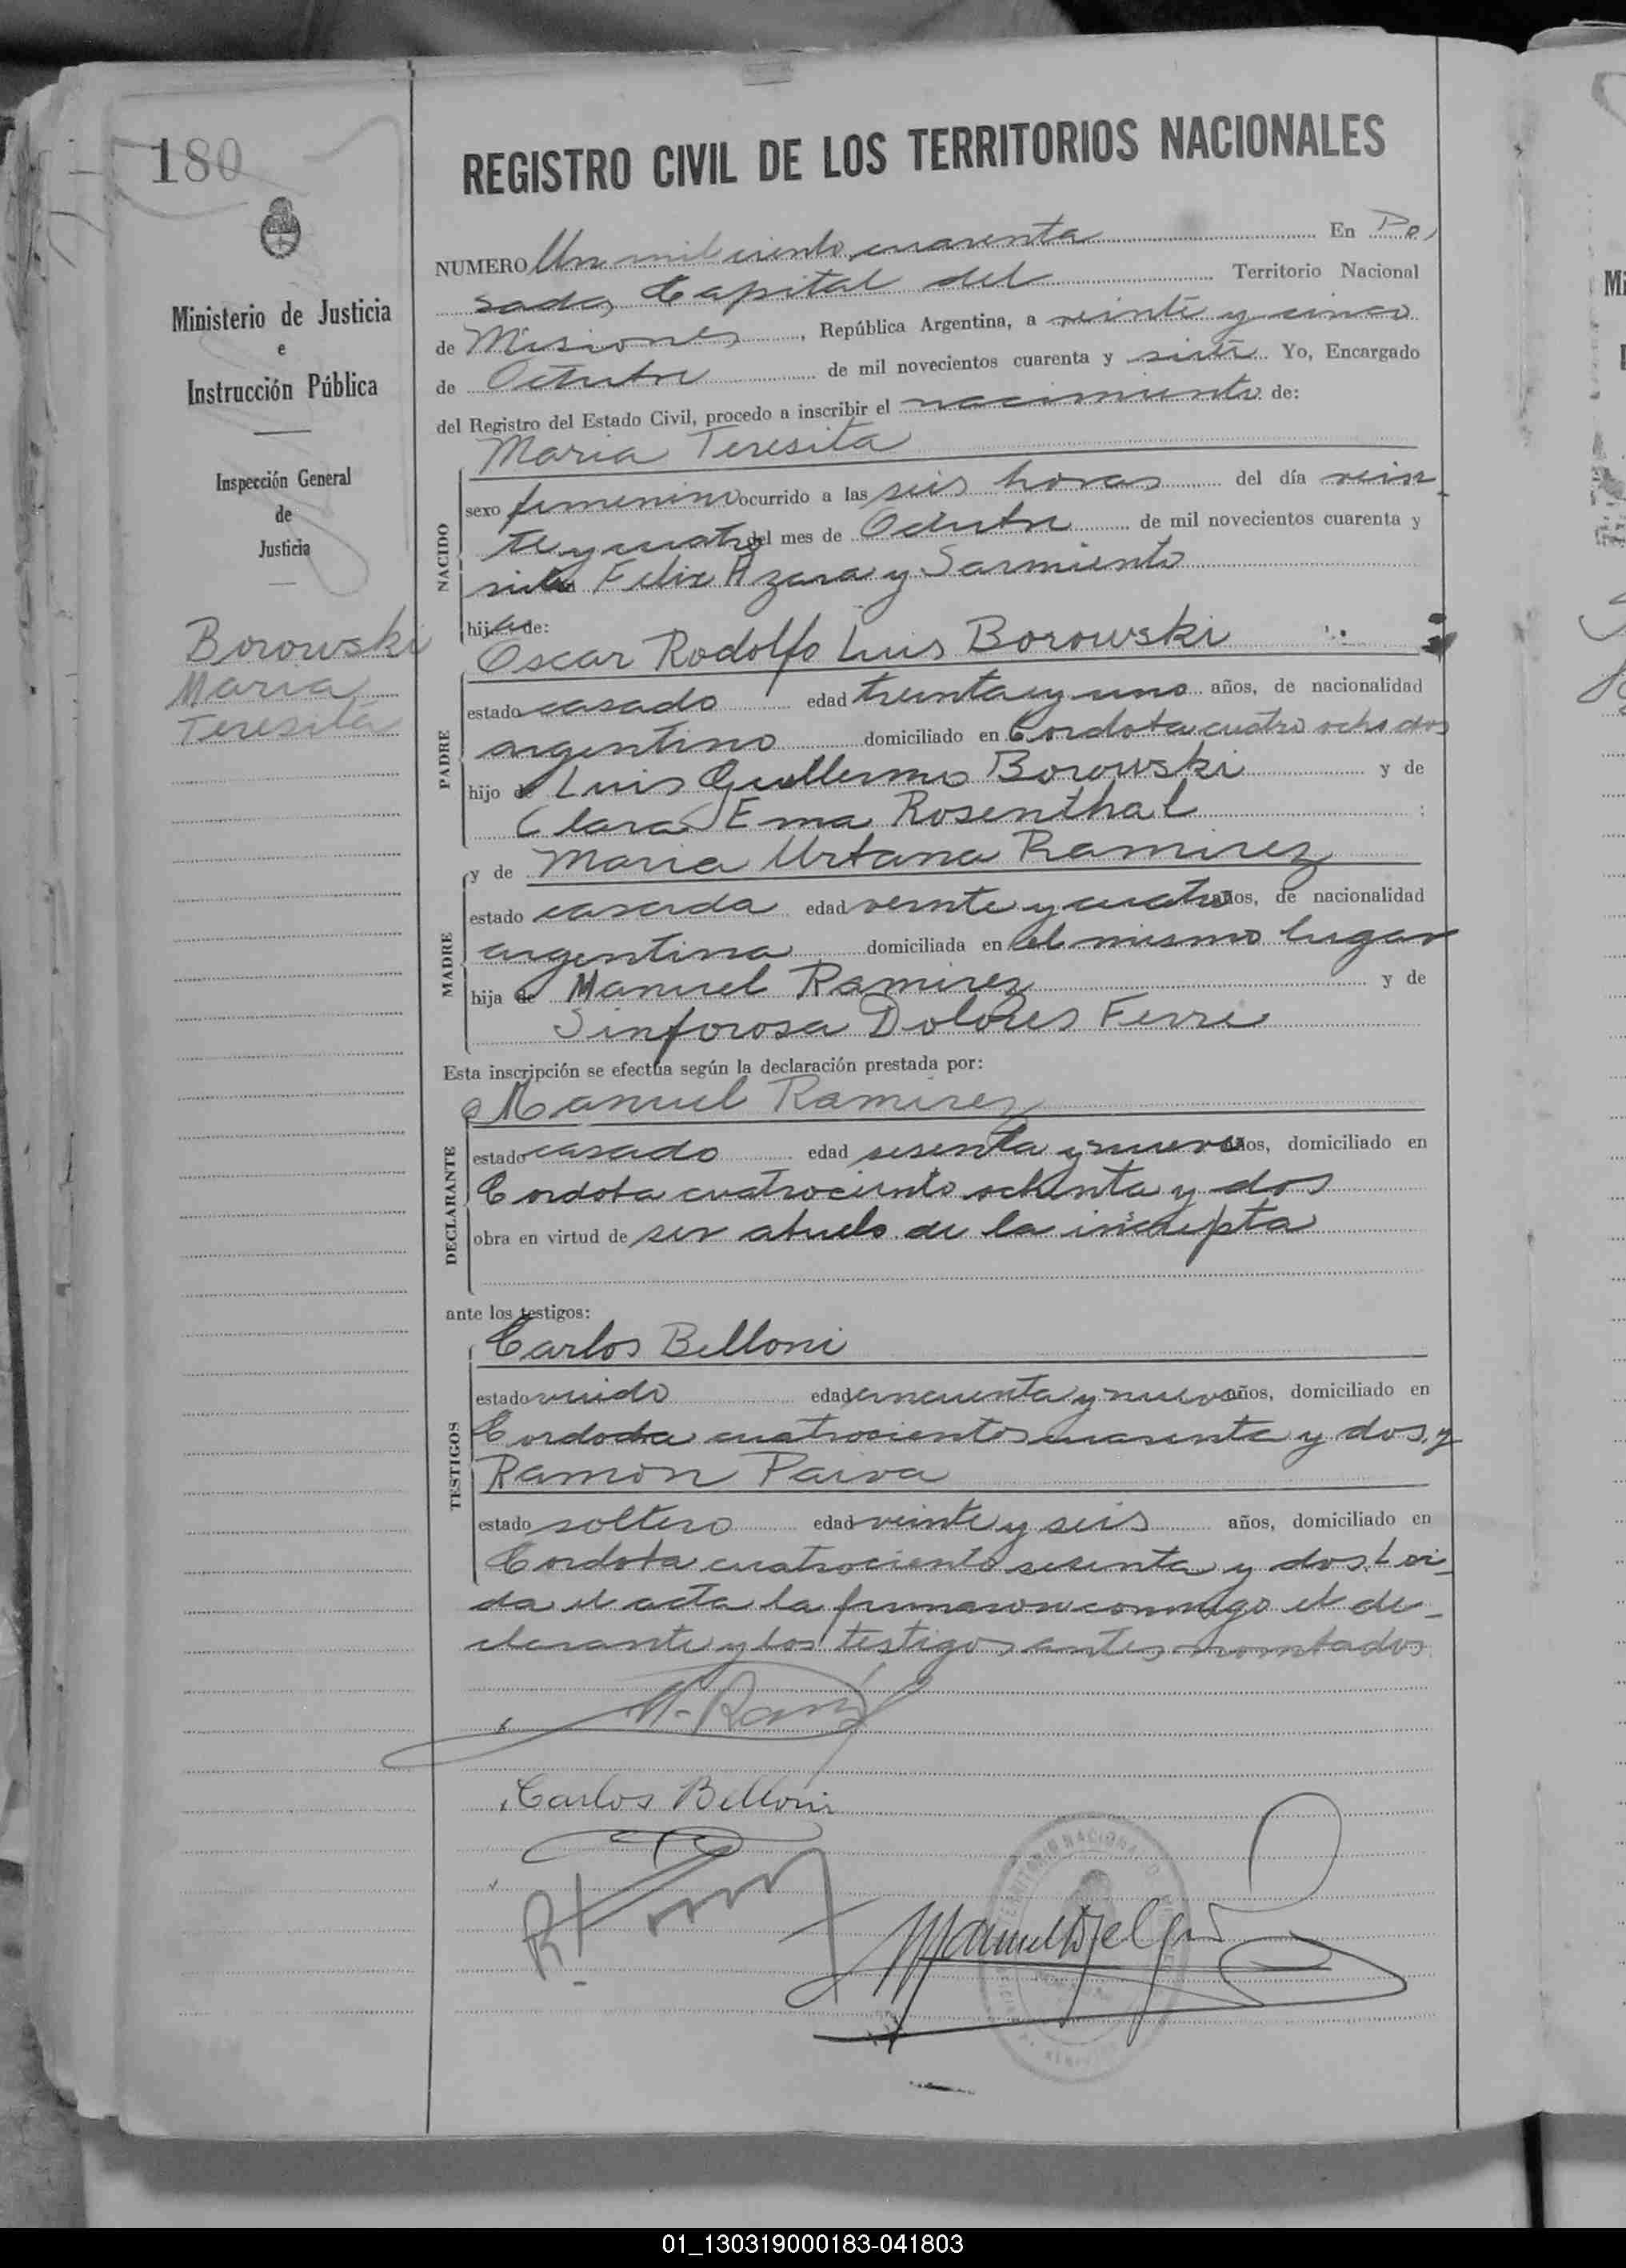 180
REGISTRO CIVIL DE LOS TERRITORIOS NACIONALES
Ministerio de Justicia
e
Instrucción Pública
Inspección General
de
Justicia
Borowski
Maria
Teresita
NUMERO Un mil ciento cuarenta En Po,
sadas Capital del Territorio Nacional
de Misiones, República Argentina, a veinte y cinco
de Octubre de mil novecientos cuarenta y siete Yo, Encargado
del Registro del Estado Civil, procedo a inscribir el nacimiento de:
Maria Teresita
NACIDO
sexo femenino ocurrido a las seis horas del día vein-
te y cuatro del mes de Octubre de mil novecientos cuarenta y
siete Felix Azara y Sarmiento
hija de:
Oscar Rodolfo Luis Borowski
PADRE
estado casado edad treinta y uno años, de nacionalidad
argentino domiciliado en Cordoba cuatro ocho dos
hijo de Luis Guillermo Borowski y de
Clara Ema Rosenthal ;
y de Maria Urbana Ramirez
MADRE
estado casada edad veinte y cuatro años, de nacionalidad
argentina domiciliada en el mismo lugar
hija de Manuel Ramirez y de
Sinforosa Dolores Ferre
Esta inscripción se efectúa según la declaración prestada por:
Manuel Ramirez
DECLARANTE
estado casado edad sesenta y nueve años, domiciliado en
Cordoba cuatrociento ochenta y dos
obra en virtud de ser abuelo de la inscripta
ante los testigos:
Carlos Belloni
TESTIGOS
estado viudo edad cincuenta y nueve años, domiciliado en
Cordoba cuatrocientos cuarenta y dos, y
Ramon Paiva
estado soltero edad veinte y seis años, domiciliado en
Cordoba cuatrociento sesenta y dos. Lei-
da el acta la firmaron conmigo el de-
clarante y los testigos antes nombrados
M. Ram
Carlos Belloni
01_130319000183-041803